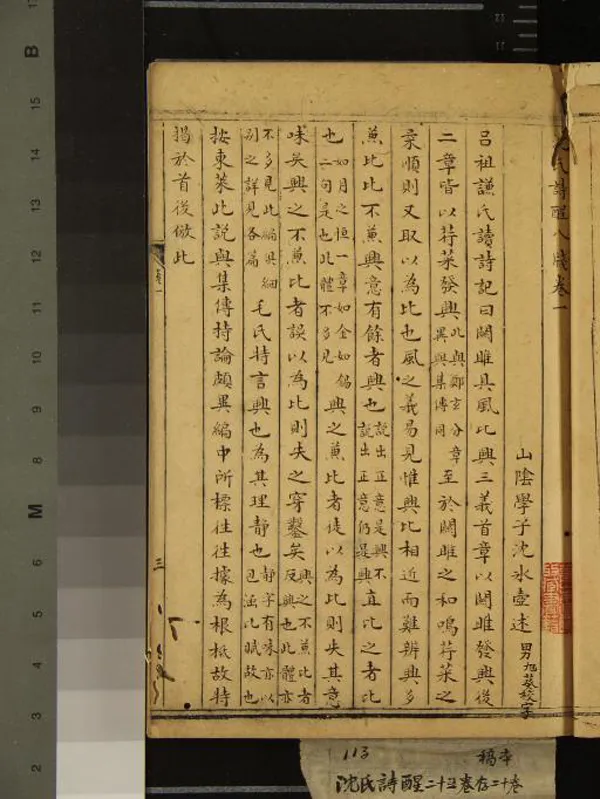 沈氏詩醒八牋卷一
山陰學子沈冰壺述 男旭葵校字
呂祖謙氏讀詩記曰關雎具風比興三義首章以關雎發興後
二章皆以荇菜發興此與鄭玄分章異與集傳同至於關雎之和鳴荇菜之
柔順則又取以為比也風之義易見惟興比相近而難辨興多
兼比比不兼興意有餘者興也說出正意是興不說出正意仍是興直比之者比
也如月之恒一章如金如錫二句是也此體不多見興之兼比者徒以為比則失其意
味矣興之不兼比者誤以為比則失之穿鑿矣興之不兼比者反興也此體亦
不多見此編與細別之詳見各篇毛氏特言興也為其理静也静字有味亦以包涵比賦故也
按東萊此說與集傳持論頗異編中所標往往據為根柢故特
揭於首後倣此
卷一
三
113
稿本
沈氏詩醒二十五卷存二十卷
B
15
14
13
12
11
10
9
8
M
6
5
4
3
2